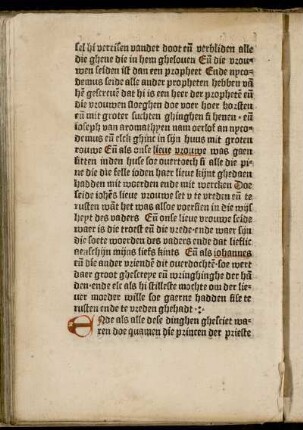 sel hi verrisen vander doot eñ verbliden alle
die ghene die in hem gheloven Eñ die vrou-
wen seiden ist dan een propheet Ende nyco-
demus seide alle ander propheten hebben vā
hē gescreue dat hi is een heer der prophetē eñ
die vrouwen sloeghen doe voer hoer borsten
eñ mit groter suchten ghinghen si henen · eñ
ioseph van aromathyen nam oerlof an nyco-
demus eñ elck ghinc in sijn huus mit groten
rouwe Eñ als onse lieue vrouwe was gaen
sitten in den huse soe ouertoech si alle die pi-
ne die die felle ioden haer lieue kijnt ghedaen
hadden mit woerden ende mit wercken Doe
seide iohēs lieue vrouwe set v te vreden eñ te
rusten wāt het was alsoe voersien in die wijs
heyt des vaders Eñ onse lieue vrouwe seide
waer is die troest eñ die vrede · ende waer sijn
die soete woerden des vaders ende dat lieflic
aenschijn mijns liefs kints Eñ als iohannes
eñ die ander vriendē dit ouerdochtē · soe wert
daer groot ghescreye eñ wringhinghe der hā
den · ende els als hi stilleste mochte om der lie-
uer moeder wille soe gaerne hadden sise te
rusten ende te vreden ghehadt ·:·
Ende als alle dese dinghen ghesciet wa-
ren doe quamen die princen der prieste